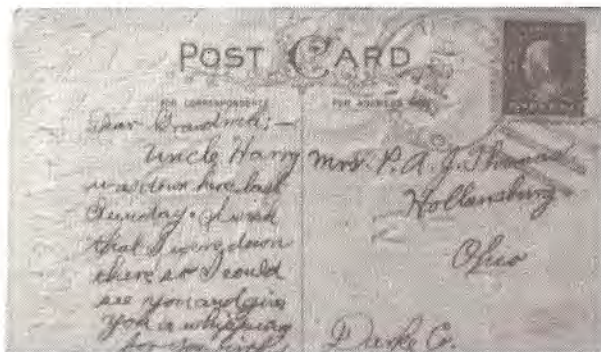 POST CARD
FOR CORRESPONDENCE
FOR ADDRESS ONLY
Dear Grandma;—
Uncle Harry
was down here last
Sunday. I wish
that I were down
there so I could
see you and give
you a whipping
for your birth
Mrs. P. A. J. Thomas
Hollansburg
Ohio
Darke Co.